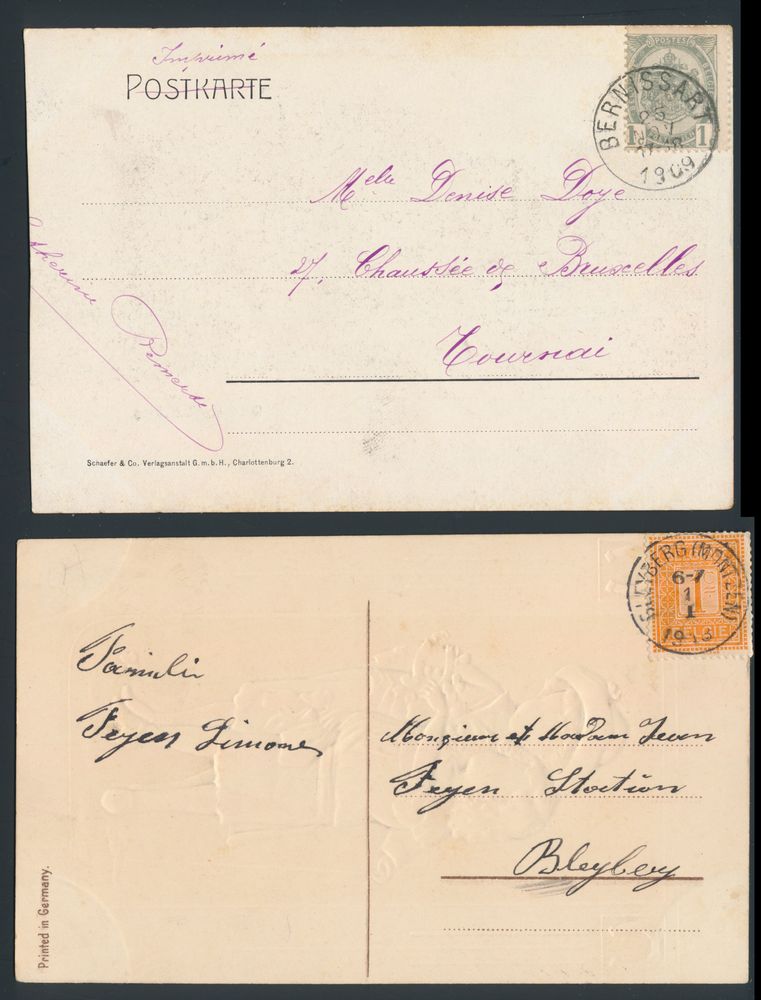 Imprimé
POSTKARTE
POSTES
1 1
BERNISSART
1909
Melle Denise Doye
27, Chaussée de Bruxelles
Tournai
Schaefer & Co. Verlagsanstalt G.m.b.H., Charlottenburg 2.
BLEYBERG (MONTZEN)
6-7
1
I
1913
1
BELGIE
Familie
Feyen Simones
Monsieur et Madam Jean
Feyen Station
Bleyberg
Printed in Germany.